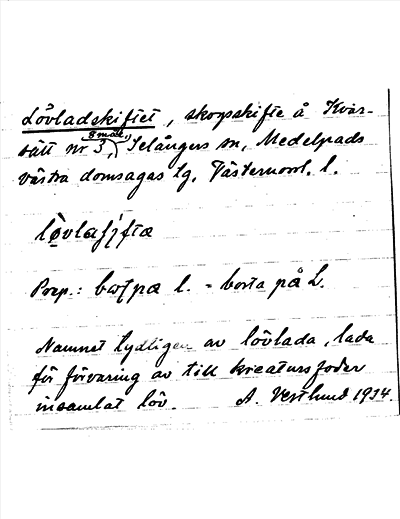 Lövladskiftet, skogsskifte å Kvis-
sätt nr 3, (8 mål) Selångers sn, Medelpads
västra domsagas tg, Västernorrl. l.
Prep.: l. = borta på L.
Namnet tydligen av lövlada, lada
för förvaring av till kreatursfoder
insamlat löv. A. Vestlund 1934.